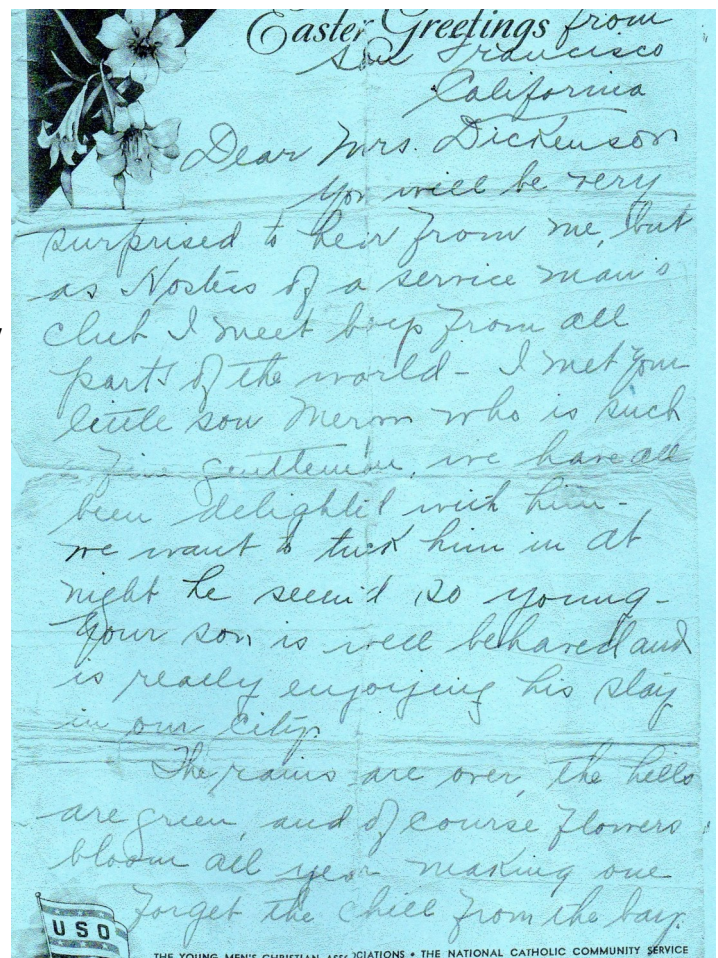 Easter Greetings from
San Francisco
California
Dear Mrs. Dickenson
You will be very
surprised to heir from me, but
as Hostess of a service man's
club I meet boys from all
parts of the world - I met your
little son who is such
a fine gentleman, we have all
been delighted with him -
we want to tuck him in at
night he seem'd so young -
Your son is well behaved and
is really enjoying his stay
in our city.
The rains are over, the hills
are green, and of course flowers
bloom all year making one
forget the chill from the bay.
USO
THE YOUNG MEN'S CHRISTIAN ASSOCIATIONS • THE NATIONAL CATHOLIC COMMUNITY SERVICE